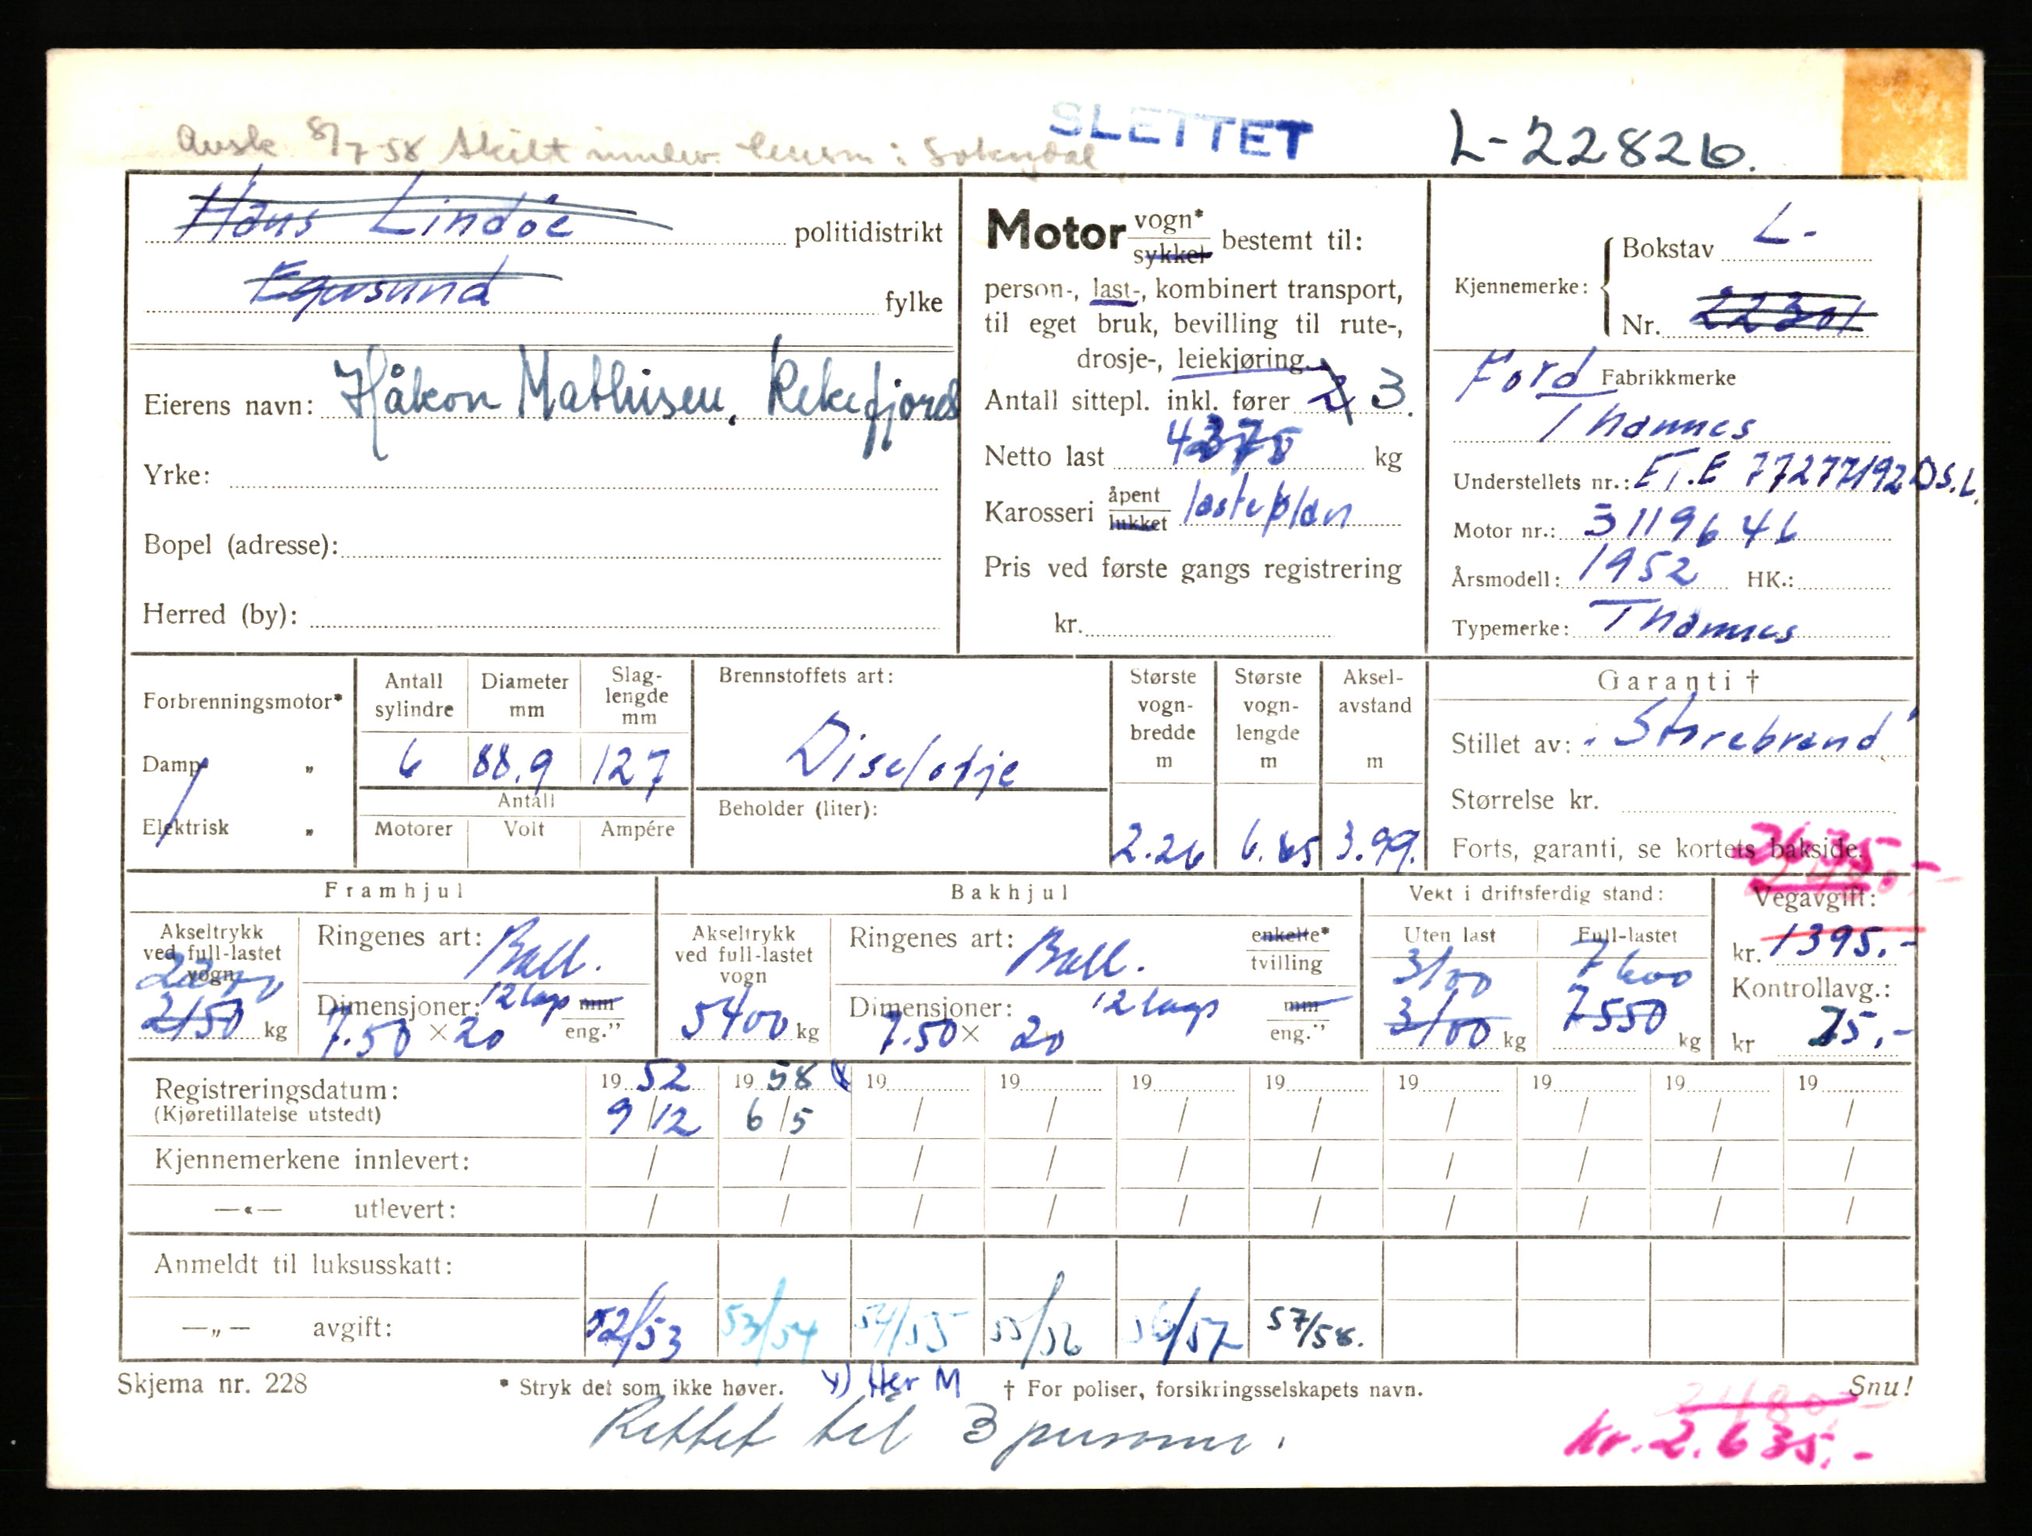 SLETTET
L-22826.
Avsk 8/7-58 Skilt innlev. lensm i Sokndal
Hans Lindöe politidistrikt
Egersund fylke
Eierens navn: Håkon Mathisen, Rekefjord
Yrke:
Bopel (adresse):
Herred (by):
Motor vogn* sykkel bestemt til:
person-, last-, kombinert transport,
til eget bruk, bevilling til rute-,
drosje-, leiekjøring.
Antall sittepl. inkl. fører 2 3.
Netto last kg
Karosseri åpent lukket lasteplan
Pris ved første gangs registrering
kr.
Kjennemerke: Bokstav L-
Nr. 22301
Ford Fabrikkmerke
Thammes
Understellets nr.: ET.E 77277192DS.L.
Motor nr.: 3119646
Årsmodell: 1952 HK.:
Typemerke: Thammes
Forbrenningsmotor*
Damp "
Elektrisk "
Antall sylindre Diameter mm Slag-lengde mm
6 88.9 127
Antall
Motorer Volt Ampére
Brennstoffets art:
Diselolje
Beholder (liter):
Største vogn-bredde m
2.26
Største vogn-lengde m
6.65
Aksel-avstand m
3.99.
Garanti †
Stillet av: "Storebrand"
Størrelse kr.
Forts, garanti, se kortets bakside.
Framhjul
Akseltrykk ved full-lastet vogn
2200
2150 kg
Ringenes art: Ball.
Dimensjoner: 12 lags mm
7.50 × 20 eng."
Bakhjul
Akseltrykk ved full-lastet vogn
5400 kg
Ringenes art: Ball. enkelte* tvilling
Dimensjoner: 12 lags mm
7.50 × 20 eng."
Vekt i driftsferdig stand:
Uten last Full-lastet
3100 7600
3100 kg 7550 kg
Vegavgift:
kr. 1395.-
Kontrollavg.:
kr 25.-
Registreringsdatum: 19 52 19 58 19 19 19 19 19 19 19 19
(Kjøretillatelse utstedt) 9/12 6/5 / / / / / / / /
Kjennemerkene innlevert: / / / / / / / / / /
—«— utlevert: / / / / / / / / / /
Anmeldt til luksusskatt:
—„— avgift: 52/53 53/54 54/55 55/56 56/57 57/58.
Skjema nr. 228 * Stryk det som ikke høver. x) Her M † For poliser, forsikringsselskapets navn. Snu!
Rettet til 3 personer.
2480.-
kr. 2.635.-